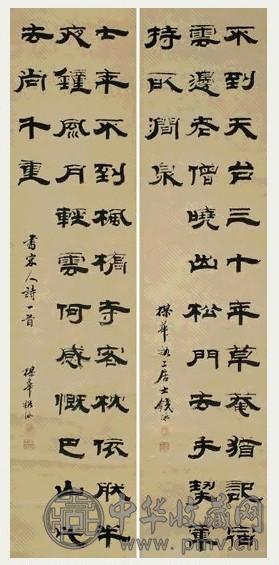 不到天台三十年草菴猶記宿
雲邊老僧曉出松門去手挈軍
持取澗泉
居士錢泳
七年不到楓橋寺客枕依然半
夜鐘風月輕雲何感慨巴山此
去尚千重
書宋人詩一首
中华收藏网
www.pmv.cn